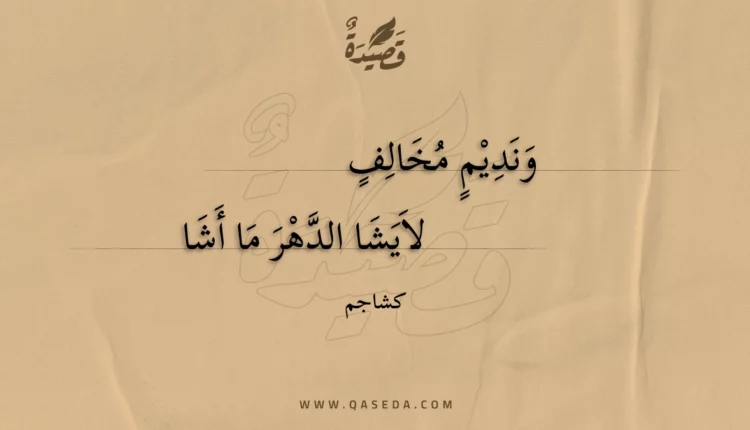 قَصِيدَةٌ
وَنَدِيْمٍ مُخَالِفٍ
لاَيَشَا الدَّهْرَ مَا أَشَا
كشاجم
WWW.QASEDA.COM